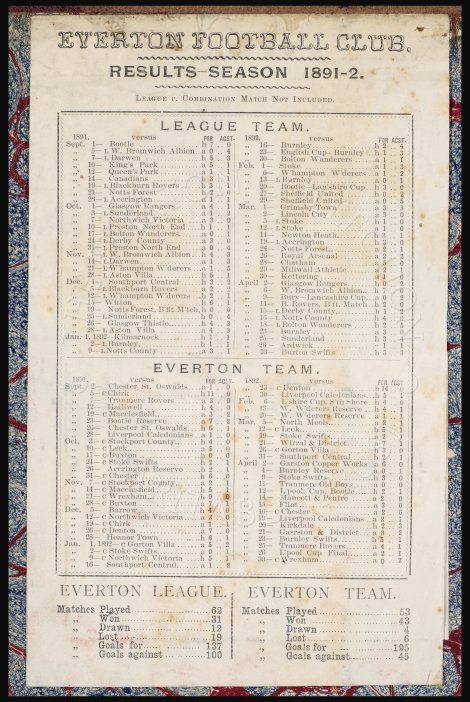 EVERTON FOOTBALL CLUB.
RESULTS—SEASON 1891-2.
LEAGUE v. COMBINATION MATCH NOT INCLUDED.
LEAGUE TEAM.
1891. versus FOR AGST.
Sept. 1— Bootle h 7 0
„ 5—L W. Bromwich Albion a 0 4
„ 7—L Darwen h 5 3
„ 10— King's Park a 5 1
„ 12— Queen's Park a 1 1
„ 14— Canadians h 3 1
„ 19—L Blackburn Rovers h 3 1
„ 21— Notts Forest h 2 0
„ 26—L Accrington a 1 1
Oct. 1— Glasgow Rangers a 4 1
„ 3—L Sunderland a 1 2
„ 7— Northwich Victoria a 3 0
„ 10—L Preston North End h 1 1
„ 17—L Bolton Wanderers a 0 1
„ 24—L Derby County a 3 0
„ 31—L Preston North End a 0 4
Nov. 7—L W. Bromwich Albion h 4 3
„ 14—L Darwen a 1 3
„ 21—L W'hampton W'derers a 1 5
„ 28—L Aston Villa h 5 1
Dec. 1— Southport Central h 3 2
„ 5—L Blackburn Rovers a 2 2
„ 12—L W'hampton W'derers h 2 1
„ 15— Witton h 6 1
„ 19— Notts Forest, B'ft M'tch h 0 0
„ 25—L Sunderland h 0 4
„ 26— Glasgow Thistle h 4 3
„ 28—L Aston Villa a 4 3
Jan. 1, 1892—Kilmarnock h 1 1
„ 2—L Burnley h 1 1
„ 9—L Notts County h 1 1
1892. versus FOR AGST.
„ 16— Burnley h 2 4
„ 23— English Cup—Burnley h 1 3
„ 30— Bolton Wanderers a 1 1
Feb. 1— Stoke a 1 1
„ 6— W'hampton W'derers a 1 2
„ 13—L Burnley a 0 1
„ 20— Bootle—Lan'shire Cup h 3 0
„ 27— Sheffield United h 0 2
„ 29— Sheffield United a 0 5
Mar. 1— Grimsby Town a 3 3
„ 2— Lincoln City a 3 0
„ 5—L Stoke h 1 0
„ 12—L Stoke a 1 0
„ 14— Newton Heath h 3 1
„ 19—L Accrington h 3 0
„ 24— Notts Forest a 2 1
„ 26— Royal Arsenal a 2 2
„ 28— Chatham a 2 0
„ 29— Millwall Athletic a 2 1
„ 30— Kettering a 4 1
April 2— Glasgow Rangers h 0 2
„ W. Bromwich Albion
„ 9— Bury—Lancashire Cup a 0 2
„ 11— B. Rovers, B'ft. Match h 2 0
„ 15—L Derby County h 1 2
„ 16—L Notts County h 4 0
„ 18—L Bolton Wanderers h 2 5
„ 23— Burnley a 3 3
„ 25— Sunderland h 3 4
„ 28— Ardwick h 1
„ 30— Burton Swifts h 3 3
EVERTON TEAM.
1891. versus FOR AGST.
Sept. 2— Chester St. Oswalds a 1 1
„ 5—C Chirk h 11 0
„ 7— Tranmere Rovers a 3 0
„ 12— Halliwell h 4 0
„ 19—C Macclesfield a 3 2
„ 23— Bootle Reserve a 7 2
„ 26—C Chester St. Oswalds h 6 1
„ 28— Liverpool Caledonians a 1 0
Oct. 3—C Stockport County h 4 1
„ 10—C Leek a 5 0
„ 17—C Buxton a 0 0
„ 24—C Stoke Swifts h 2 1
„ 26— Accrington Reserve h 2 1
„ 31—C Chester h 6 0
Nov. 7—C Stockport County a 2 1
„ 14—C Macclesfield h 5 1
„ 21—C Wrexham h 0 0
„ 28—C Buxton h 4 0
Dec. 5— Barrow h 0
„ 12—C Northwich Victoria h 4 0
„ 19—C Chirk a 1 1
„ 26—C Denton a 3 0
„ 28— Heanor Town h 6 1
Jan. 1, 1892—C Gorton Villa a 5 2
„ 2—C Stoke Swifts a 0 1
„ 9—C Northwich Victoria h 5 1
„ 16— Southport Central a 1 2
1892. versus FOR AGST.
„ 23—C Denton h 14 0
„ 30— Liverpool Caledonians h 5 1
Feb. 6— L'shire Cup, S'th Shore h 4 0
„ 13— W. W'derers Reserve h 4 1
„ 20— W. W'derers Reserve a 1 1
Mar. 5— North Meols a 2 1
„ 12—C Leek h 5 1
„ 19— Stoke Swifts a 2 1
„ 21— Wirral & District a 7 1
„ 26—C Gorton Villa h 3 0
„ 31— Southport Central h 2 0
April 2— Garston Copper Works a 6 0
„ 4— Burnley Reserve a 0
„ 9— Stoke Swifts h 3 0
„ 11— Tranmere Old Boys a 0 0
„ 12— L'pool. Cup, Bootle h 2 1
„ 14— Mancott & Pentre a 2 0
„ 15— Flint a 3 0
„ 16—C Chester a 2 0
„ 19— Liverpool Caledonians a 2 1
„ 20— Kirkdale h 2 3
„ 21— Garston & District a 3 2
„ 23— Burnley Swifts h 5 1
„ 25— Tranmere Rovers a 4 1
„ 26— L'pool Cup Final 2 1
„ 30—C Wrexham a 0 2
EVERTON LEAGUE.
Matches Played 62
„ Won 31
„ Drawn 12
„ Lost 19
„ Goals for 137
„ Goals against 100
EVERTON TEAM.
Matches Played 53
„ Won 43
„ Drawn 4
„ Lost 6
„ Goals for 195
„ Goals against 45